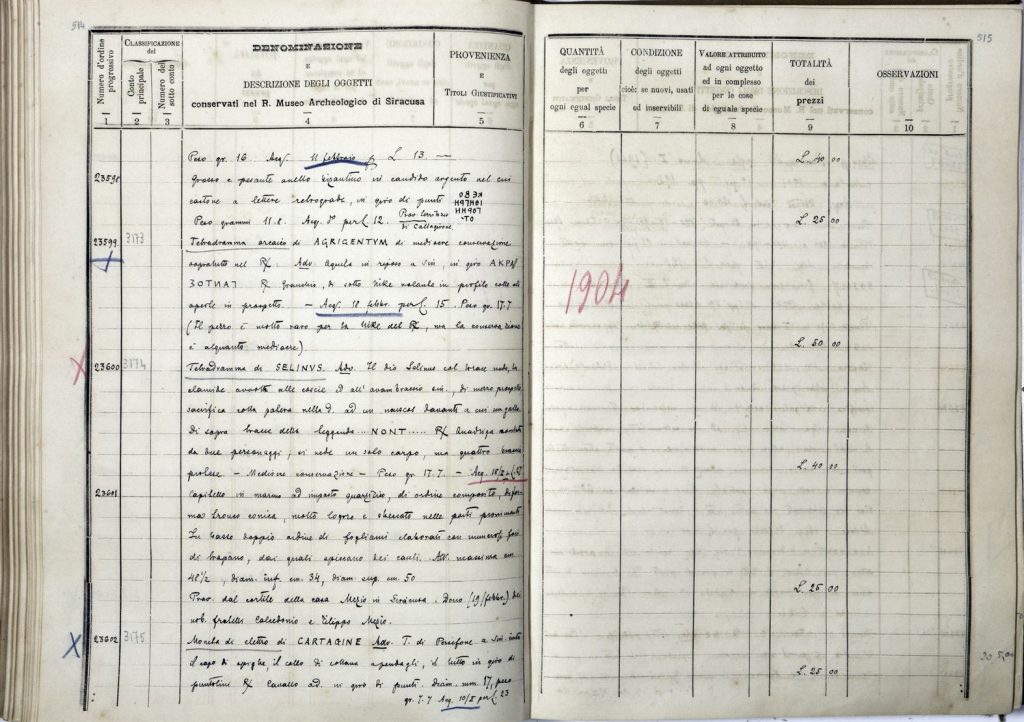 514
Numero d'ordine progressivo
CLASSIFICAZIONE del
Conto principale
Numero del sotto conto
DENOMINAZIONE
E
DESCRIZIONE DEGLI OGGETTI
conservati nel R. Museo Archeologico di Siracusa
PROVENIENZA
E
TITOLI GIUSTIFICATIVI
1 2 3 4 5
Peso gr. 16. Acq. 11 febbraio p. L 13. —
23598
Grosso e pesante anello bizantino in candido argento nel cui
castone a lettere retrograde, in giro di punti
Peso grammi 11.8. Acq. per L 12. Prov. territorio
di Caltagirone
23599 3173
Tetradramma arcaico di AGRIGENTVM di mediocre conservazione
sopratutto nel R/. Adv. Aquila in riposo a sin., in giro AKPA/
R/ Granchio, di sotto Nike volante in profilo colle ali
aperte in prospetto. — Acq. 18 febbr. per L. 15. Peso gr. 17.7
(Il pezzo è molto raro per la Nike del R/, ma la conservazione
è alquanto mediocre).
23600 3174
Tetradramma di SELINVS. Adv. Il dio Selinus col torace nudo, la
clamide avvolta alle coscie ed all'avambraccio sin., di mezzo prospetto
sacrifica colla patera nella d. ad un davanti a cui un gallo
Di sopra tracce della leggenda ...NONT..... R/ Quadriga montata
da due personaggi, si vede un solo corpo, ma quattro braccia
protese — Mediocre conservazione — Peso gr. 17.7. — Acq. 18/
23601
Capitello in marmo ad impasto quarzitico, di ordine composito, di for-
ma tronco conica, molto logoro e sbeccato nelle parti prominenti
In basso doppio ordine di fogliami elaborati con numerosi fori
di trapano, dai quali spiccano dei cauli. Alt. massima cm.
48 1/2, diam. inf. cm. 34, diam. sup. cm. 50
Prov. dal cortile della casa Mezio in Siracusa. Dono (19/febbr.) dei
nob. fratelli Calcedonio e Filippo Mezio.
23602 3175
Moneta di elettro di CARTAGINE Adv. T. di Persefone a sin. cinta
il capo di spighe, il collo di collana a pendagli, il tutto in giro di
puntolini R/ Cavallo ad. in giro di punti. Diam. mm. 17, peso
gr. 7.7 Acq. 10/ per L. 23
515
QUANTITÀ
degli oggetti
per
ogni egual specie
CONDIZIONE
degli oggetti
cioè: se nuovi, usati
od inservibili
VALORE ATTRIBUITO
ad ogni oggetto
ed in complesso
per le cose
di eguale specie
TOTALITÀ
dei
prezzi
OSSERVAZIONI
6 7 8 9 10
L. 40 00
L. 25 00
1904
L. 50 00
L. 40 00
L. 25 00
L. 25 00